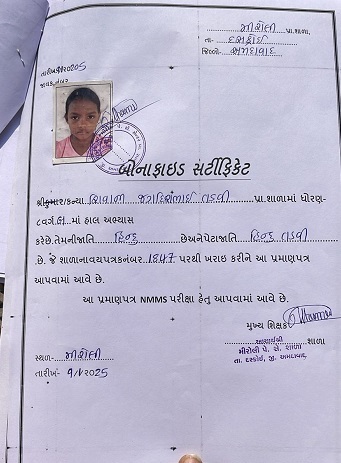 મીરોલી પ્રા.શાળા,
તા- દસક્રોઈ
જિલ્લો- અમદાવાદ
તારીખ 2025
જાવક નંબર
બોનાફાઇડ સર્ટીફિકેટ
શ્રી કુમાર/કન્યા શિવાની જગદિશભાઇ તડવી પ્રા.શાળામાં ધોરણ-
૮વર્ગ માં હાલ અભ્યાસ
કરેછે.તેમનીજાતિ હિન્દુ છેઅનેપેટાજાતિ હિન્દુ તડવી
છે. જે શાળાનાવયપત્રકનંબર 1847 પરથી ખરાઇ કરીને આ પ્રમાણપત્ર
આપવામાં આવે છે.
આ પ્રમાણપત્ર NMMS પરીક્ષા હેતુ આપવામાં આવે છે.
મુખ્ય શિક્ષક
આચાર્યશ્રી શાળા
સ્થળ- મીરોલી
મીરોલી પે. સે. શાળા
તા. દસ્ક્રોઇ, જી. અમદાવાદ
તારીખ- 9/1/2025